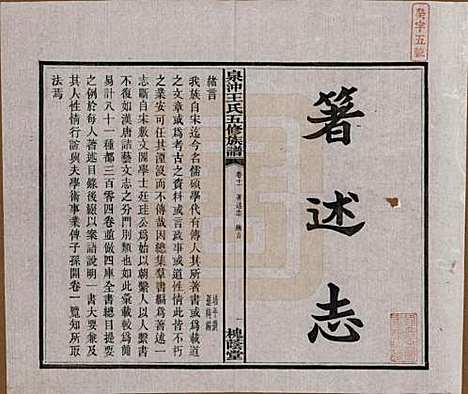 癸字五號
箸述志
泉沖王氏五修族譜
卷十一 著述志 緒言
一 槐蔭堂
緒言
我族自宋迄今名儒碩學代有傳人其所著書或為載道
之文章或為考古之資料或言政事或道性情皆不朽
之業安可任其湮沒而不傳因總集羣書編為著述一
志斷自宋敷文閣學士廷珪公為始以朝繫人以人繫書
不復如漢唐諸藝文志之分門別類也如此彙載較為簡
易計八十一種都三百零四卷並倣四庫全書總目提要
之例於每人著述目錄後綴以案語說明一書大要及
其人性情行誼與夫學術事業俾子孫開卷一覽知所取
法焉